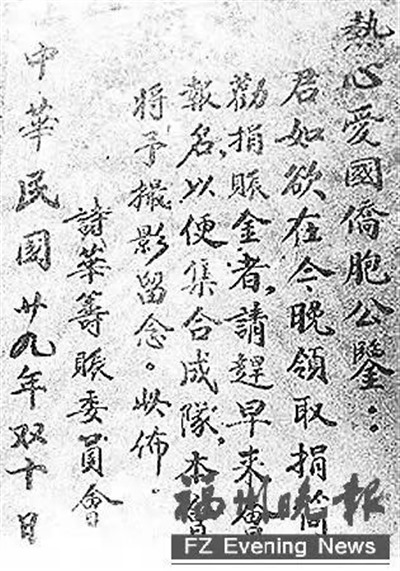 熱心愛國僑胞公鑒：
君如欲在今晚領取捐筒
勸捐賑金者，請趕早來會
報名，以便集合成隊，本會
將予撮影留念。此佈．
詩華籌賑委員會
中華民國廿九年双十日
福州晚報
FZ Evening News